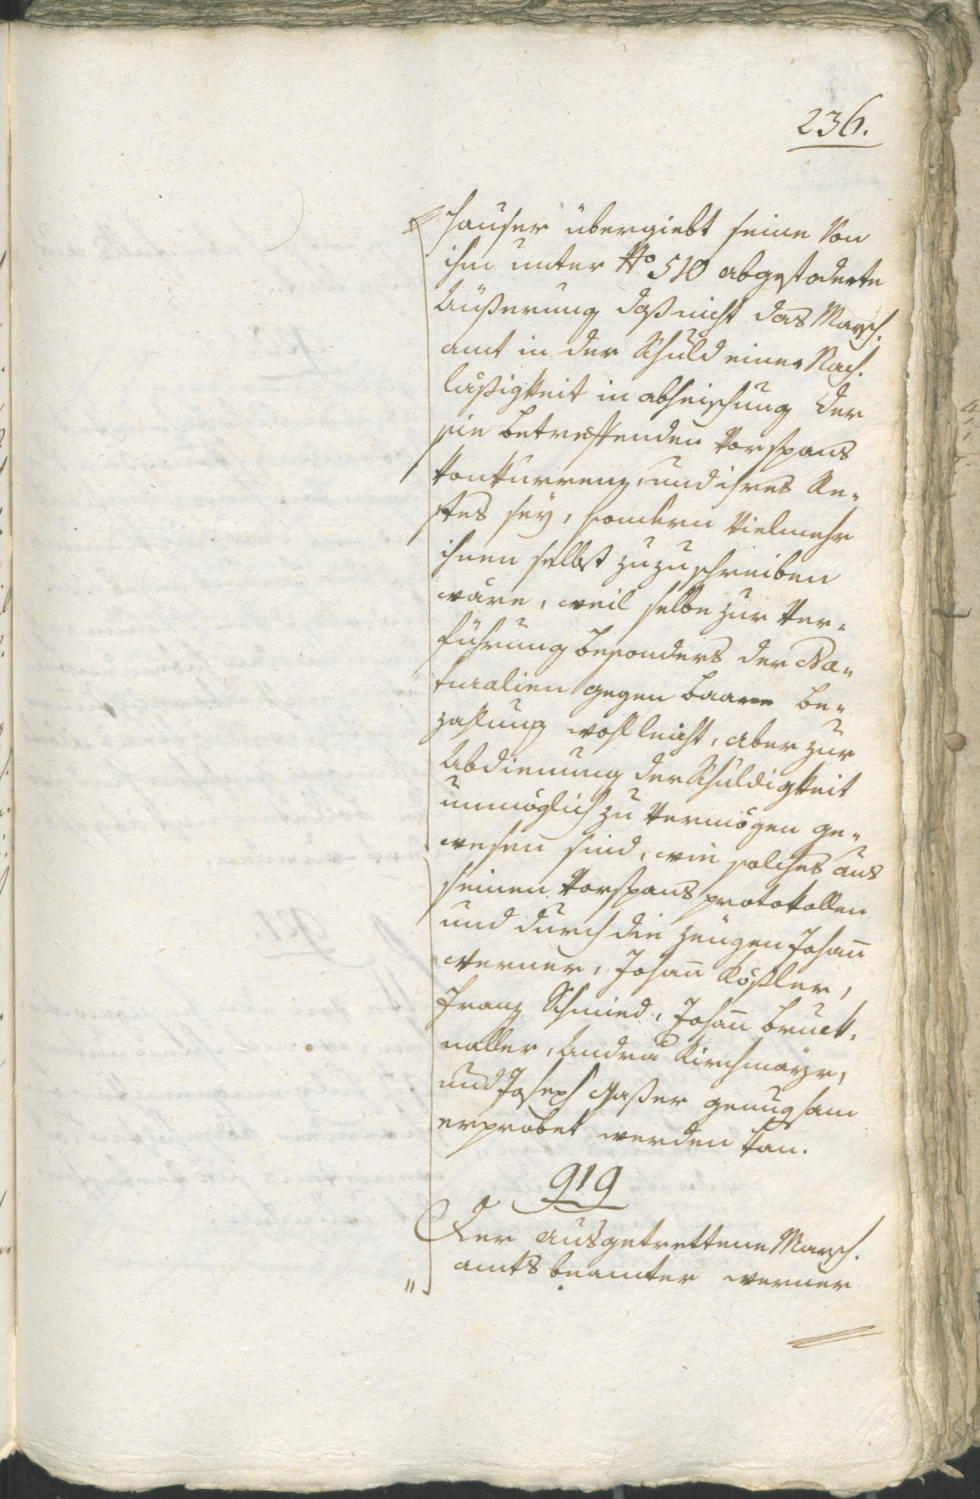 236.
Hauser übergiebt seine Von
ihm unter No 510 abgefoderte
Äußerung daß nicht das Marsch¬
amt in der Schuld einer Nach¬
läßigkeit in abheischung der
sie betreffenden Vorspans
Konkurrenz, und ihres Re¬
stes sey, sondern Vielmehr
ihnen selbst zuzuschreiben
wäre, weil selbe zur Ver¬
führung besonders der Na¬
turalien gegen baare be¬
zahlung wohl leicht, aber zur
Abdienung der Schuldigkeit
unmöglich zu Vermögen ge¬
wesen sind, wie solches aus
seinen Vorspans protokollen
und durch die Zeugen Johann
Werner, Johann Rößler,
Franz Schmied, Johann Bruck¬
naller, Andrä Kirchmayr,
und Joseph Gaßer genugsam
erprobet werden kan.
919
Der ausgetrettene Marsch¬
amts beamter Werner